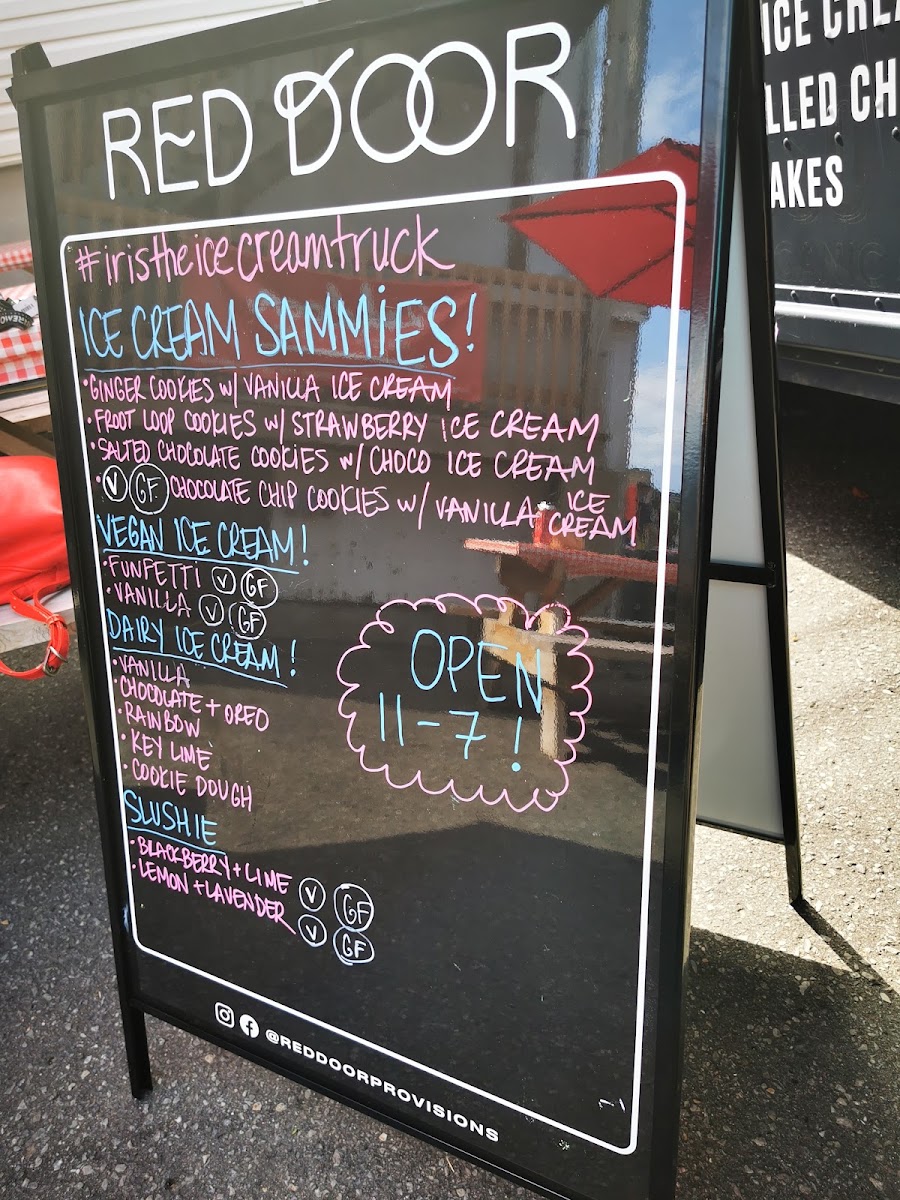 RED DOOR
#iristheicecreamtruck
ICE CREAM SAMMIES!
•GINGER COOKIES w/ VANILLA ICE CREAM
•FROOT LOOP COOKIES w/ STRAWBERRY ICE CREAM
•SALTED CHOCOLATE COOKIES w/ CHOCO ICE CREAM
•V GF CHOCOLATE CHIP COOKIES w/ VANILLA ICE CREAM
VEGAN ICE CREAM!
•FUNFETTI V GF
•VANILLA V GF
DAIRY ICE CREAM!
•VANILLA
•CHOCOLATE + OREO
•RAINBOW
•KEY LIME
•COOKIE DOUGH
OPEN
11-7!
SLUSHIE
•BLACKBERRY + LIME V GF
•LEMON + LAVENDER V GF
@REDDOORPROVISIONS
ICE CREA
LLED CH
AKES